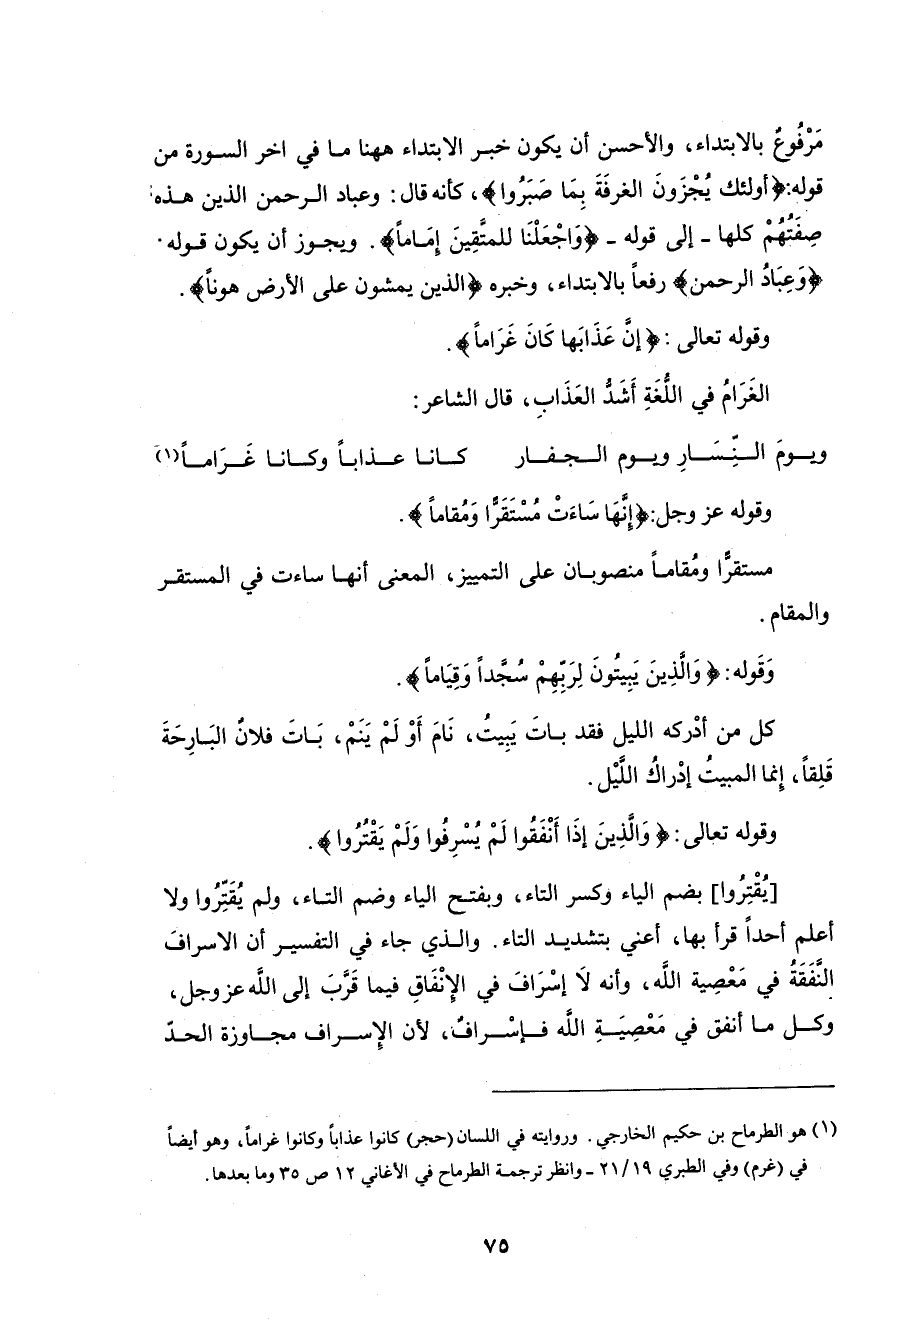 مَرْفُوعٌ بالابتداء، والأحسن أن يكون خبر الابتداء ههنا ما في اخر السورة من
قوله:﴿أولئك يُجْزَونَ الغرفَةَ بِمَا صَبَرُوا﴾، كأنه قال: وعباد الرحمن الذين هذه
صِفَتُهُمْ كلها - إلى قوله - ﴿وَاجْعَلْنَا للمتَّقِينَ إِمَاماً﴾. ويجوز أن يكون قوله
﴿وَعِبَادُ الرحمن﴾ رفعاً بالابتداء، وخبره ﴿الذين يمشون على الأرض هوناً﴾.
وقوله تعالى :﴿إنَّ عَذَابَها كَانَ غَرَاماً﴾.
الغَرَامُ في اللُّغَةِ أَشَدُّ العَذَابِ، قال الشاعر:
ويومَ النِّسَارِ ويوم الجفار كانا عذاباً وكانا غَرَاماً(١)
وقوله عز وجل:﴿إنَّهَا سَاءَتْ مُسْتَقَرًّا وَمُقاماً﴾.
مستقرًّا ومُقاماً منصوبان على التمييز، المعنى أنها ساءت في المستقر
والمقام.
وَقَوله:﴿وَالَّذِينَ يَبِيتُونَ لِرَبِّهِمْ سُجَّداً وَقِيَاماً﴾.
كل من أدْركه الليل فقد باتَ يَبِيتُ، نَامَ أَوْ لَمْ يَنَمْ، بَاتَ فلانٌ البَارِحَةَ
قَلِقاً، إنما المبيتُ إدْراكُ اللَّيْل.
وقوله تعالى:﴿وَالَّذِينَ إذَا أَنْفَقُوا لَمْ يُسْرِفُوا وَلَمْ يَقْتُرُوا﴾.
[يُقْتِرُوا] بضم الياء وكسر التاء، وبفتح الياء وضم التاء، ولم يُقَتِّرُوا ولا
أعلم أحداً قرأ بها، أعني بتشديد التاء. والذي جاء في التفسير أن الاسرافَ
النَّفَقَةُ في مَعْصِية اللَّه، وأنه لَا إسْرَافَ في الإِنْفَاقِ فيما قَرَّبَ إلى اللَّه عز وجل،
وكل ما أنفق في مَعْصِيَةِ اللَّه فإسْرافٌ، لأن الإِسراف مجاوزة الحدّ
(١) هو الطرماح بن حكيم الخارجي. وروايته في اللسان (حجر) كانوا عذاباً وكانوا غراماً، وهو أيضاً
في (غرم) وفي الطبري ١٩/ ٢١ - وانظر ترجمة الطرماح في الأغاني ١٢ ص ٣٥ وما بعدها.
٧٥